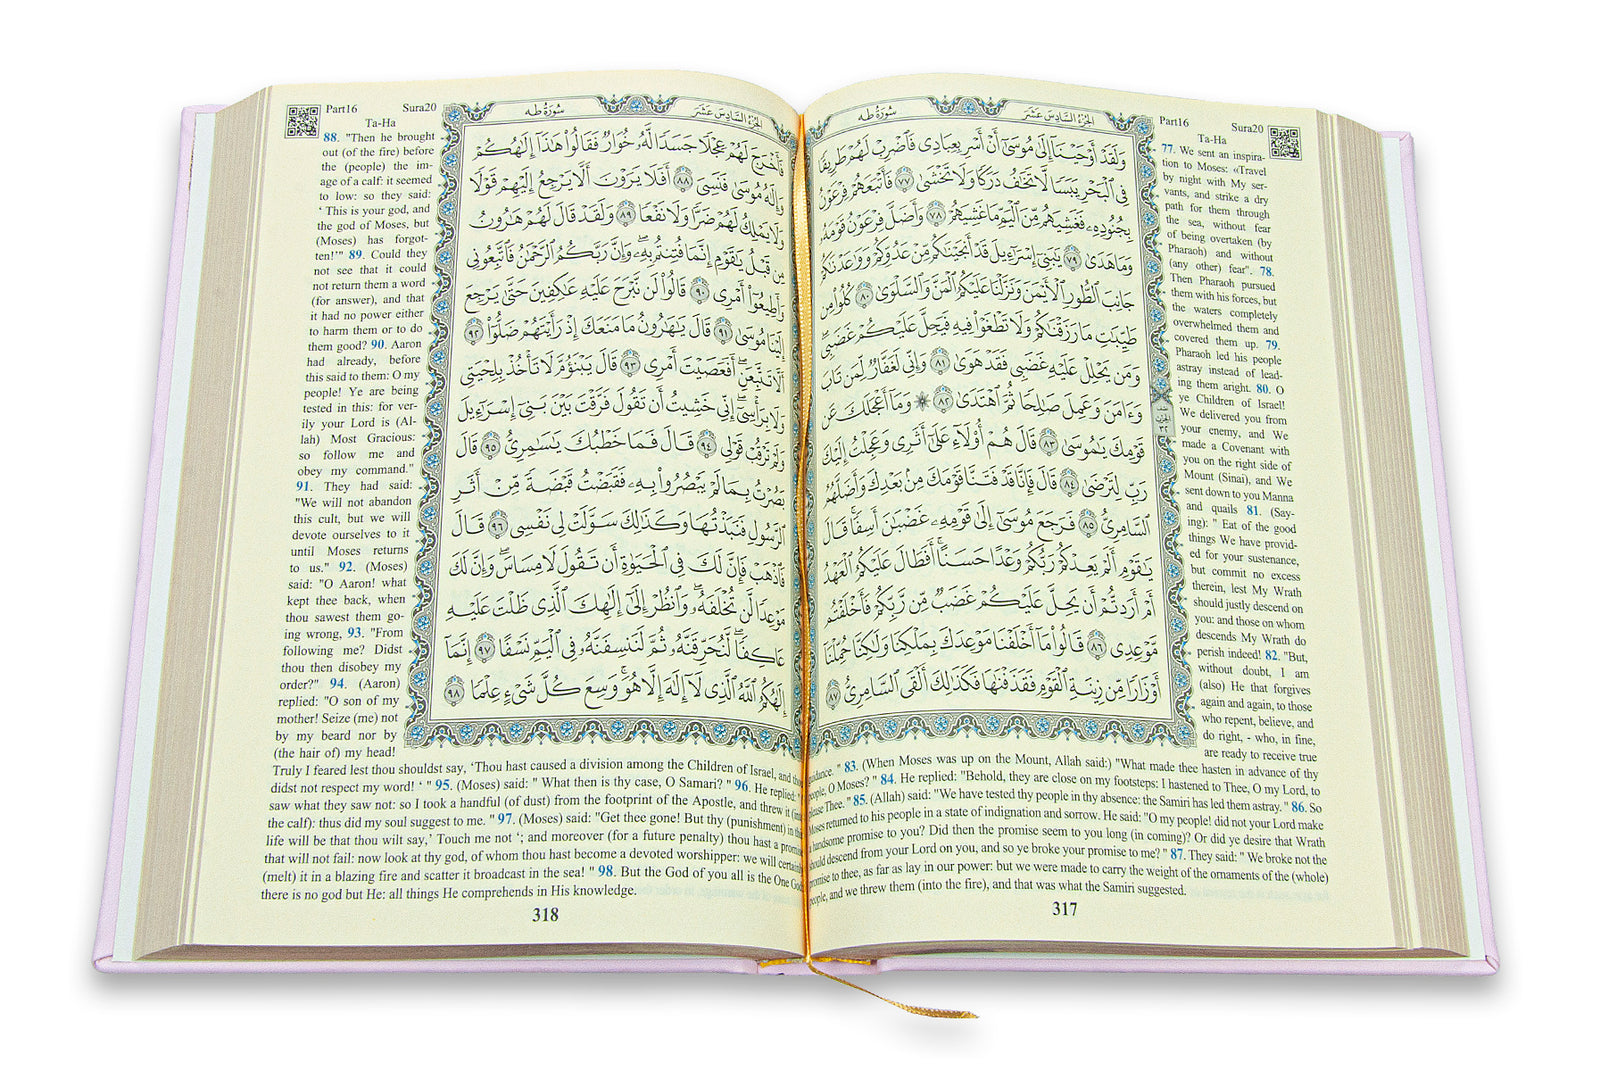 سُورَةُ طه
الجُزْءُ السَّادِسَ عَشَرَ
وَلَقَدْ أَوْحَيْنَا إِلَىٰ مُوسَىٰ أَنْ أَسْرِ بِعِبَادِي فَاضْرِبْ لَهُمْ طَرِيقًا
فِي الْبَحْرِ يَبَسًا لَّا تَخَافُ دَرَكًا وَلَا تَخْشَىٰ ٧٧ فَأَتْبَعَهُمْ فِرْعَوْنُ
بِجُنُودِهِ فَغَشِيَهُم مِّنَ الْيَمِّ مَا غَشِيَهُمْ ٧٨ وَأَضَلَّ فِرْعَوْنُ قَوْمَهُ
وَمَا هَدَىٰ ٧٩ يَٰبَنِي إِسْرَٰٓءِيلَ قَدْ أَنجَيْنَٰكُم مِّنْ عَدُوِّكُمْ وَوَٰعَدْنَٰكُمْ
جَانِبَ الطُّورِ الْأَيْمَنَ وَنَزَّلْنَا عَلَيْكُمُ الْمَنَّ وَالسَّلْوَىٰ ٨٠ كُلُوا مِن
طَيِّبَٰتِ مَا رَزَقْنَٰكُمْ وَلَا تَطْغَوْا فِيهِ فَيَحِلَّ عَلَيْكُمْ غَضَبِي
وَمَن يَحْلِلْ عَلَيْهِ غَضَبِي فَقَدْ هَوَىٰ ٨١ وَإِنِّي لَغَفَّارٌ لِّمَن تَابَ
وَءَامَنَ وَعَمِلَ صَٰلِحًا ثُمَّ اهْتَدَىٰ ٨٢ وَمَا أَعْجَلَكَ عَن
قَوْمِكَ يَٰمُوسَىٰ ٨٣ قَالَ هُمْ أُولَاءِ عَلَىٰ أَثَرِي وَعَجِلْتُ إِلَيْكَ
رَبِّ لِتَرْضَىٰ ٨٤ قَالَ فَإِنَّا قَدْ فَتَنَّا قَوْمَكَ مِن بَعْدِكَ وَأَضَلَّهُمُ
السَّامِرِيُّ ٨٥ فَرَجَعَ مُوسَىٰ إِلَىٰ قَوْمِهِ غَضْبَٰنَ أَسِفًا قَالَ
يَٰقَوْمِ أَلَمْ يَعِدْكُمْ رَبُّكُمْ وَعْدًا حَسَنًا أَفَطَالَ عَلَيْكُمُ الْعَهْدُ
أَمْ أَرَدتُّمْ أَن يَحِلَّ عَلَيْكُمْ غَضَبٌ مِّن رَّبِّكُمْ فَأَخْلَفْتُم
مَّوْعِدِي ٨٦ قَالُوا مَا أَخْلَفْنَا مَوْعِدَكَ بِمَلْكِنَا وَلَٰكِنَّا حُمِّلْنَا
أَوْزَارًا مِّن زِينَةِ الْقَوْمِ فَقَذَفْنَٰهَا فَكَذَٰلِكَ أَلْقَى السَّامِرِيُّ ٨٧
Part16 Sura20
Ta-Ha
77. We sent an inspira-
tion to Moses: «Travel
by night with My ser-
vants, and strike a dry
path for them through
the sea, without fear
of being overtaken (by
Pharaoh) and without
(any other) fear". 78.
Then Pharaoh pursued
them with his forces, but
the waters completely
overwhelmed them and
covered them up. 79.
Pharaoh led his people
astray instead of lead-
ing them aright. 80. O
ye Children of Israel!
We delivered you from
your enemy, and We
made a Covenant with
you on the right side of
Mount (Sinai), and We
sent down to you Manna
and quails 81. (Say-
ing): " Eat of the good
things We have provid-
ed for your sustenance,
but commit no excess
therein, lest My Wrath
should justly descend on
you: and those on whom
descends My Wrath do
perish indeed! 82. "But,
without doubt, I am
(also) He that forgives
again and again, to those
who repent, believe, and
do right, - who, in fine,
are ready to receive true
guidance. " 83. (When Moses was up on the Mount, Allah said:) "What made thee hasten in advance of thy
people, O Moses? " 84. He replied: "Behold, they are close on my footsteps: I hastened to Thee, O my Lord, to
please Thee. " 85. (Allah) said: "We have tested thy people in thy absence: the Samiri has led them astray." 86. So
Moses returned to his people in a state of indignation and sorrow. He said: "O my people! did not your Lord make
a handsome promise to you? Did then the promise seem to you long (in coming)? Or did ye desire that Wrath
should descend from your Lord on you, and so ye broke your promise to me? " 87. They said: " We broke not the
promise to thee, as far as lay in our power: but we were made to carry the weight of the ornaments of the (whole)
people, and we threw them (into the fire), and that was what the Samiri suggested.
317
سُورَةُ طه
الجُزْءُ السَّادِسَ عَشَرَ
فَأَخْرَجَ لَهُمْ عِجْلًا جَسَدًا لَّهُ خُوَارٌ فَقَالُوا هَٰذَا إِلَٰهُكُمْ
وَإِلَٰهُ مُوسَىٰ فَنَسِيَ ٨٨ أَفَلَا يَرَوْنَ أَلَّا يَرْجِعُ إِلَيْهِمْ قَوْلًا
وَلَا يَمْلِكُ لَهُمْ ضَرًّا وَلَا نَفْعًا ٨٩ وَلَقَدْ قَالَ لَهُمْ هَٰرُونُ
مِن قَبْلُ يَٰقَوْمِ إِنَّمَا فُتِنتُم بِهِ وَإِنَّ رَبَّكُمُ الرَّحْمَٰنُ فَاتَّبِعُونِي
وَأَطِيعُوا أَمْرِي ٩٠ قَالُوا لَن نَّبْرَحَ عَلَيْهِ عَٰكِفِينَ حَتَّىٰ يَرْجِعَ
إِلَيْنَا مُوسَىٰ ٩١ قَالَ يَٰهَٰرُونُ مَا مَنَعَكَ إِذْ رَأَيْتَهُمْ ضَلُّوا ٩٢
أَلَّا تَتَّبِعَنِ أَفَعَصَيْتَ أَمْرِي ٩٣ قَالَ يَبْنَؤُمَّ لَا تَأْخُذْ بِلِحْيَتِي
وَلَا بِرَأْسِي إِنِّي خَشِيتُ أَن تَقُولَ فَرَّقْتَ بَيْنَ بَنِي إِسْرَٰٓءِيلَ
وَلَمْ تَرْقُبْ قَوْلِي ٩٤ قَالَ فَمَا خَطْبُكَ يَٰسَٰمِرِيُّ ٩٥ قَالَ
بَصُرْتُ بِمَا لَمْ يَبْصُرُوا بِهِ فَقَبَضْتُ قَبْضَةً مِّنْ أَثَرِ
الرَّسُولِ فَنَبَذْتُهَا وَكَذَٰلِكَ سَوَّلَتْ لِي نَفْسِي ٩٦ قَالَ
فَاذْهَبْ فَإِنَّ لَكَ فِي الْحَيَوٰةِ أَن تَقُولَ لَا مِسَاسَ وَإِنَّ لَكَ
مَوْعِدًا لَّن تُخْلَفَهُ وَانظُرْ إِلَىٰ إِلَٰهِكَ الَّذِي ظَلْتَ عَلَيْهِ
عَاكِفًا لَّنُحَرِّقَنَّهُ ثُمَّ لَنَنسِفَنَّهُ فِي الْيَمِّ نَسْفًا ٩٧ إِنَّمَا
إِلَٰهُكُمُ اللَّهُ الَّذِي لَا إِلَٰهَ إِلَّا هُوَ وَسِعَ كُلَّ شَيْءٍ عِلْمًا ٩٨
Part16 Sura20
Ta-Ha
88. "Then he brought
out (of the fire) before
the (people) the im-
age of a calf: it seemed
to low: so they said:
‘ This is your god, and
the god of Moses, but
(Moses) has forgot-
ten!’" 89. Could they
not see that it could
not return them a word
(for answer), and that
it had no power either
to harm them or to do
them good? 90. Aaron
had already, before
this said to them: O my
people! Ye are being
tested in this: for ver-
ily your Lord is (Al-
lah) Most Gracious:
so follow me and
obey my command."
91. They had said:
"We will not abandon
this cult, but we will
devote ourselves to it
until Moses returns
to us." 92. (Moses)
said: "O Aaron! what
kept thee back, when
thou sawest them go-
ing wrong, 93. "From
following me? Didst
thou then disobey my
order?" 94. (Aaron)
replied: "O son of my
mother! Seize (me) not
by my beard nor by
(the hair of) my head!
Truly I feared lest thou shouldst say, ‘Thou hast caused a division among the Children of Israel, and thou
didst not respect my word! ‘ " 95. (Moses) said: " What then is thy case, O Samari? " 96. He replied: "
saw what they saw not: so I took a handful (of dust) from the footprint of the Apostle, and threw it (into
the calf): thus did my soul suggest to me. " 97. (Moses) said: "Get thee gone! But thy (punishment) in this
life will be that thou wilt say,’ Touch me not ‘; and moreover (for a future penalty) thou hast a promise
that will not fail: now look at thy god, of whom thou hast become a devoted worshipper: we will certainly
(melt) it in a blazing fire and scatter it broadcast in the sea! " 98. But the God of you all is the One God
there is no god but He: all things He comprehends in His knowledge.
318